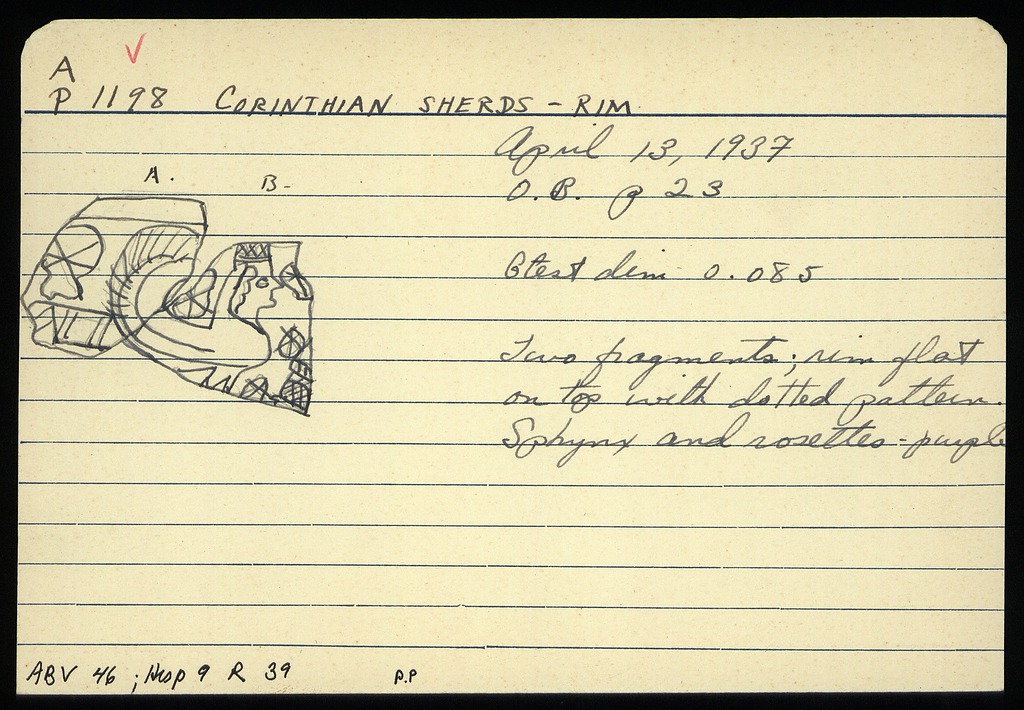 A
P 1198 CORINTHIAN SHERDS - RIM
April 13, 1937
O.B. p 23
A. B-
Gtest dim 0.085
Two fragments; rim flat
on top with dotted pattern.
Sphynx and rosettes - purple
ABV 46 ; Hesp 9 R 39 P.P